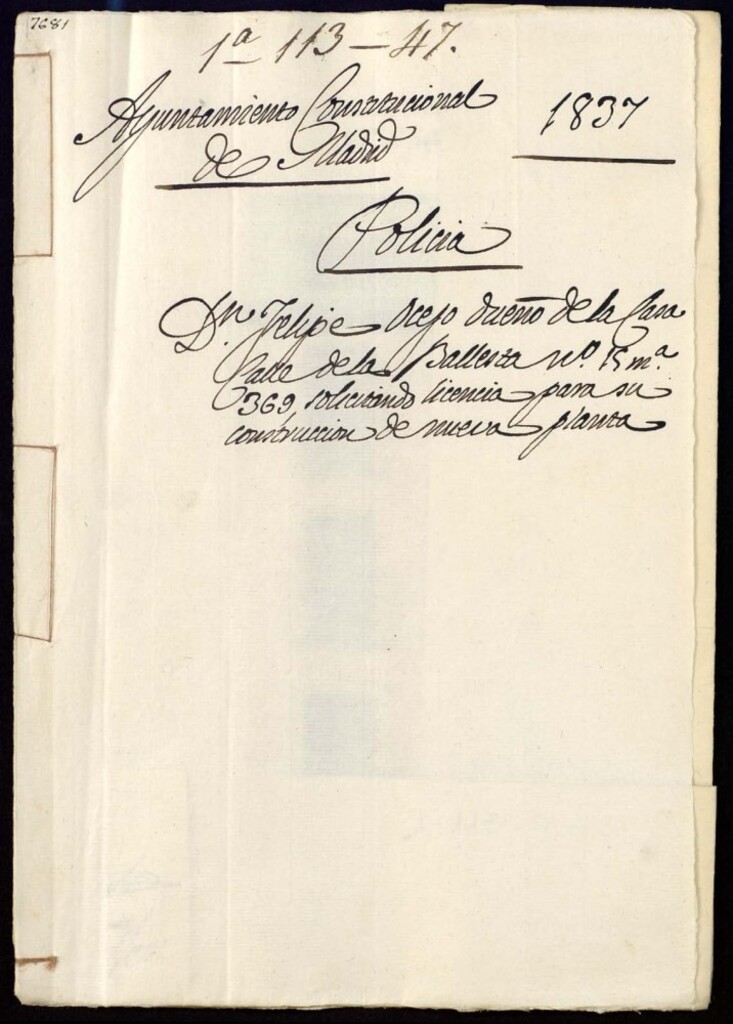 7681
1ª 113-47.
Ayuntamiento Constitucional
de Madrid
1837
Policia
Dn. Felipe Ocejo dueño de la Casa
Calle de la Ballesta nº. 15 mª.
369, solicitando licencia para su
construccion de nueva planta